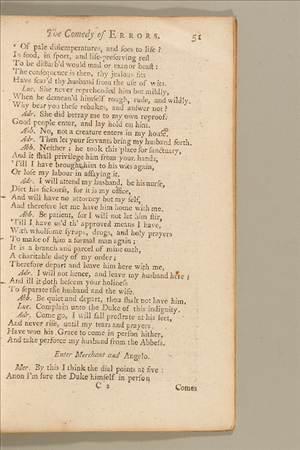 The Comedy of ERRORS. 51
' Of pale distemperatures, and foes to life?
In food, in sport, and life-preserving rest
To be disturb'd would mad or man or beast:
The consequence is then, thy jealous fits
Have scar'd thy husband from the use of wits.
Luc. She never reprehended him but mildly,
When he demean'd himself rough, rude, and wildly.
Why bear you these rebukes, and answer not?
Adr. She did betray me to my own reproof.
Good people enter, and lay hold on him.
Abb. No, not a creature enters in my house.
Adr. Then let your servants bring my husband forth.
Abb. Neither; he took this place for sanctuary,
And it shall privilege him from your hands,
'Till I have brought him to his wits again,
Or lose my labour in assaying it.
Adr. I will attend my husband, be his nurse,
Diet his sickness, for it is my office,
And will have no attorney but my self,
And therefore let me have him home with me.
Abb. Be patient, for I will not let him stir,
'Till I have us'd th' approved means I have,
With wholsome syrups, drugs, and holy prayers
To make of him a formal man again;
It is a branch and parcel of mine oath,
A charitable duty of my order;
Therefore depart and leave him here with me.
Adr. I will not hence, and leave my husband here;
And ill it doth beseem your holiness
To separate the husband and the wife.
Abb. Be quiet and depart, thou shalt not have him.
Luc. Complain unto the Duke of this indignity.
Adr. Come go, I will fall prostrate at his feet,
And never rise, until my tears and prayers
Have won his Grace to come in person hither,
And take perforce my husband from the Abbess.
Enter Merchant and Angelo.
Mer. By this I think the dial points at five:
Anon I'm sure the Duke himself in person
C 2 Comes